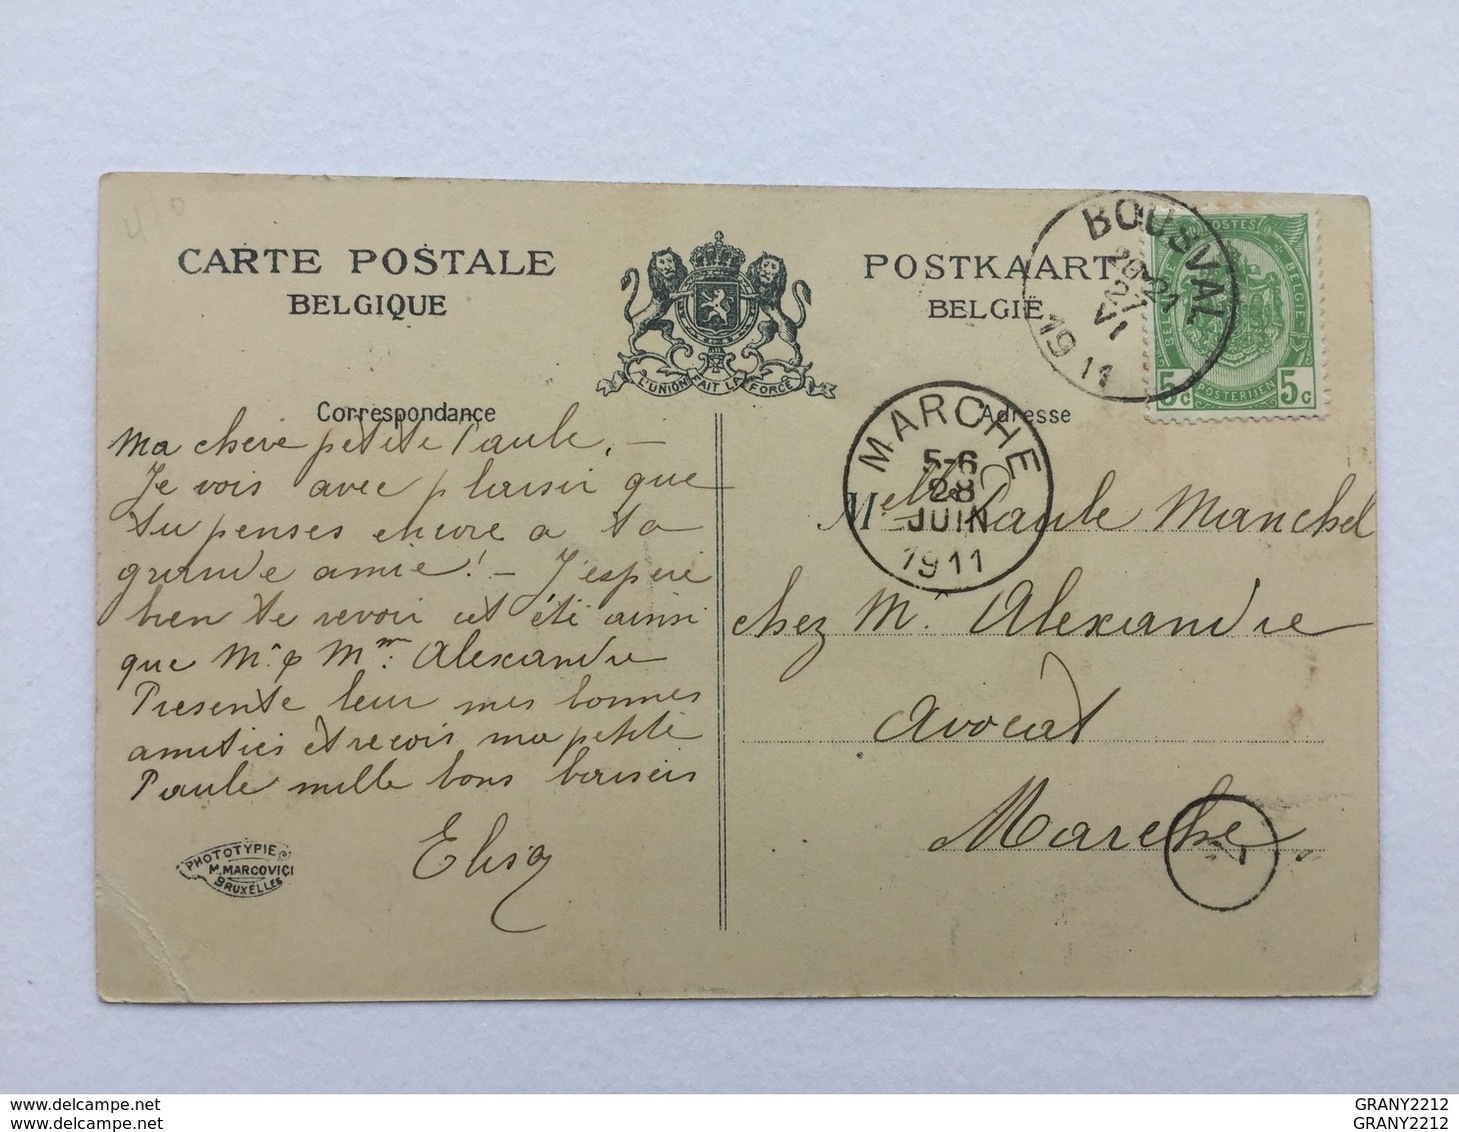 410
CARTE POSTALE
BELGIQUE
L'UNION FAIT LA FORCE
POSTKAART
BELGIË
BOUSVAL
20-21
27
VI
1911
POSTES
BELGIQUE
BELGIË
5c
POSTERIJEN
5c
Correspondance
Ma chère petite Paule, –
Je vois avec plaisir que
tu penses encore a ta
grande amie! – J'espère
bien te revoir cet été ainsi
que Mr & Mme Alexandre
Présente leur mes bonnes
amitiés et reçois ma petite
Paule mille bons baisers
Elisa
PHOTOTYPIE
M. MARCOVICI
BRUXELLES
MARCHE
5-6
28
JUIN
1911
Adresse
Melle Paule Manchel
chez Mr Alexandre
Avocat
Marche
www.delcampe.net
www.delcampe.net
GRANY2212
GRANY2212